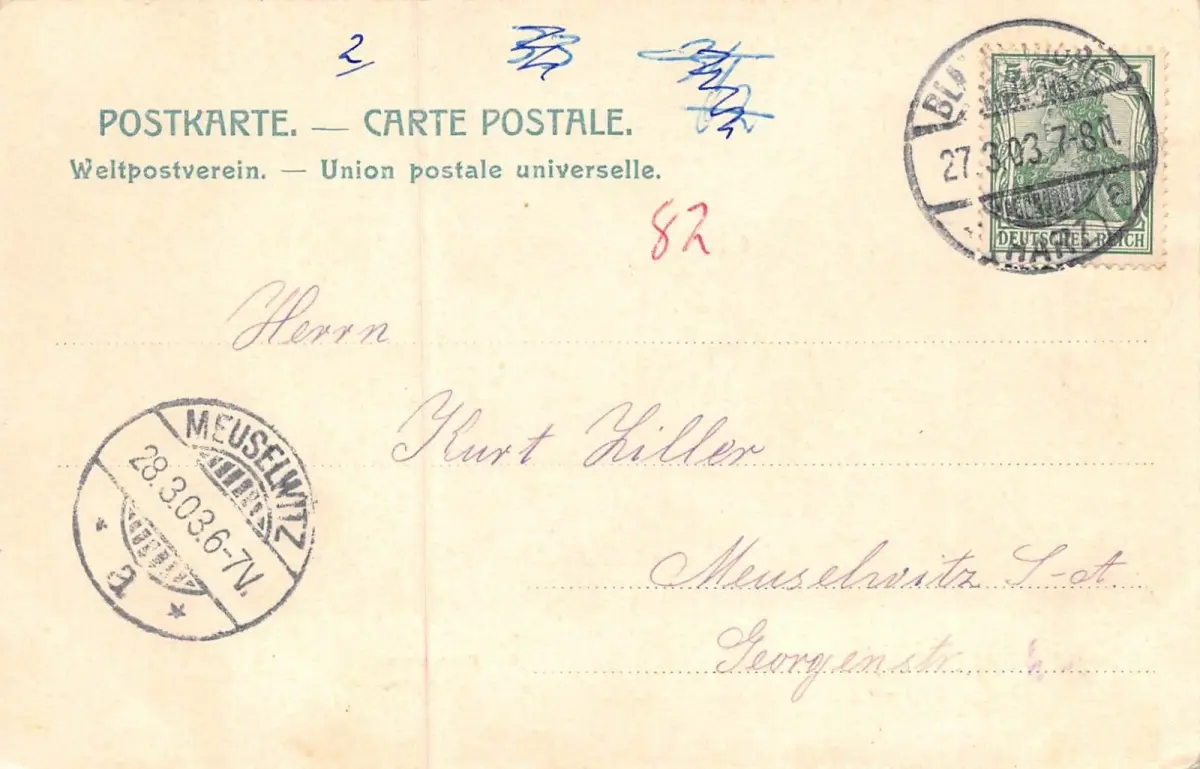 2
POSTKARTE. — CARTE POSTALE.
Weltpostverein. — Union postale universelle.
82
5
27.3.03.7-8N.
HARZ
DEUTSCHES REICH
Herrn
Kurt Ziller
Meuselwitz S-A.
Georgenstr.
MEUSELWITZ
28.3.03.6-7V.
* a *